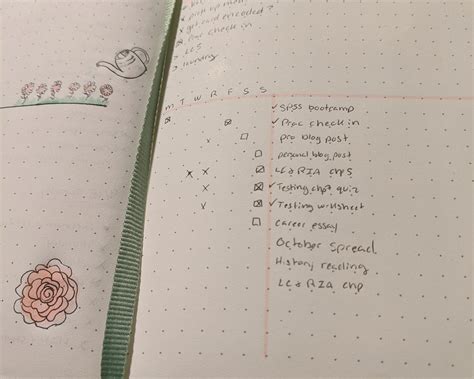 get card encoded?
Prac check in
LC3
laundry
M T W R F S S
SPSS bootcamp
Prac check in
pro blog post
personal blog post
LC & RIA chp5
Testing chp7 quiz
Testing worksheet
career essay
October spread
History reading
LC & RIA chp